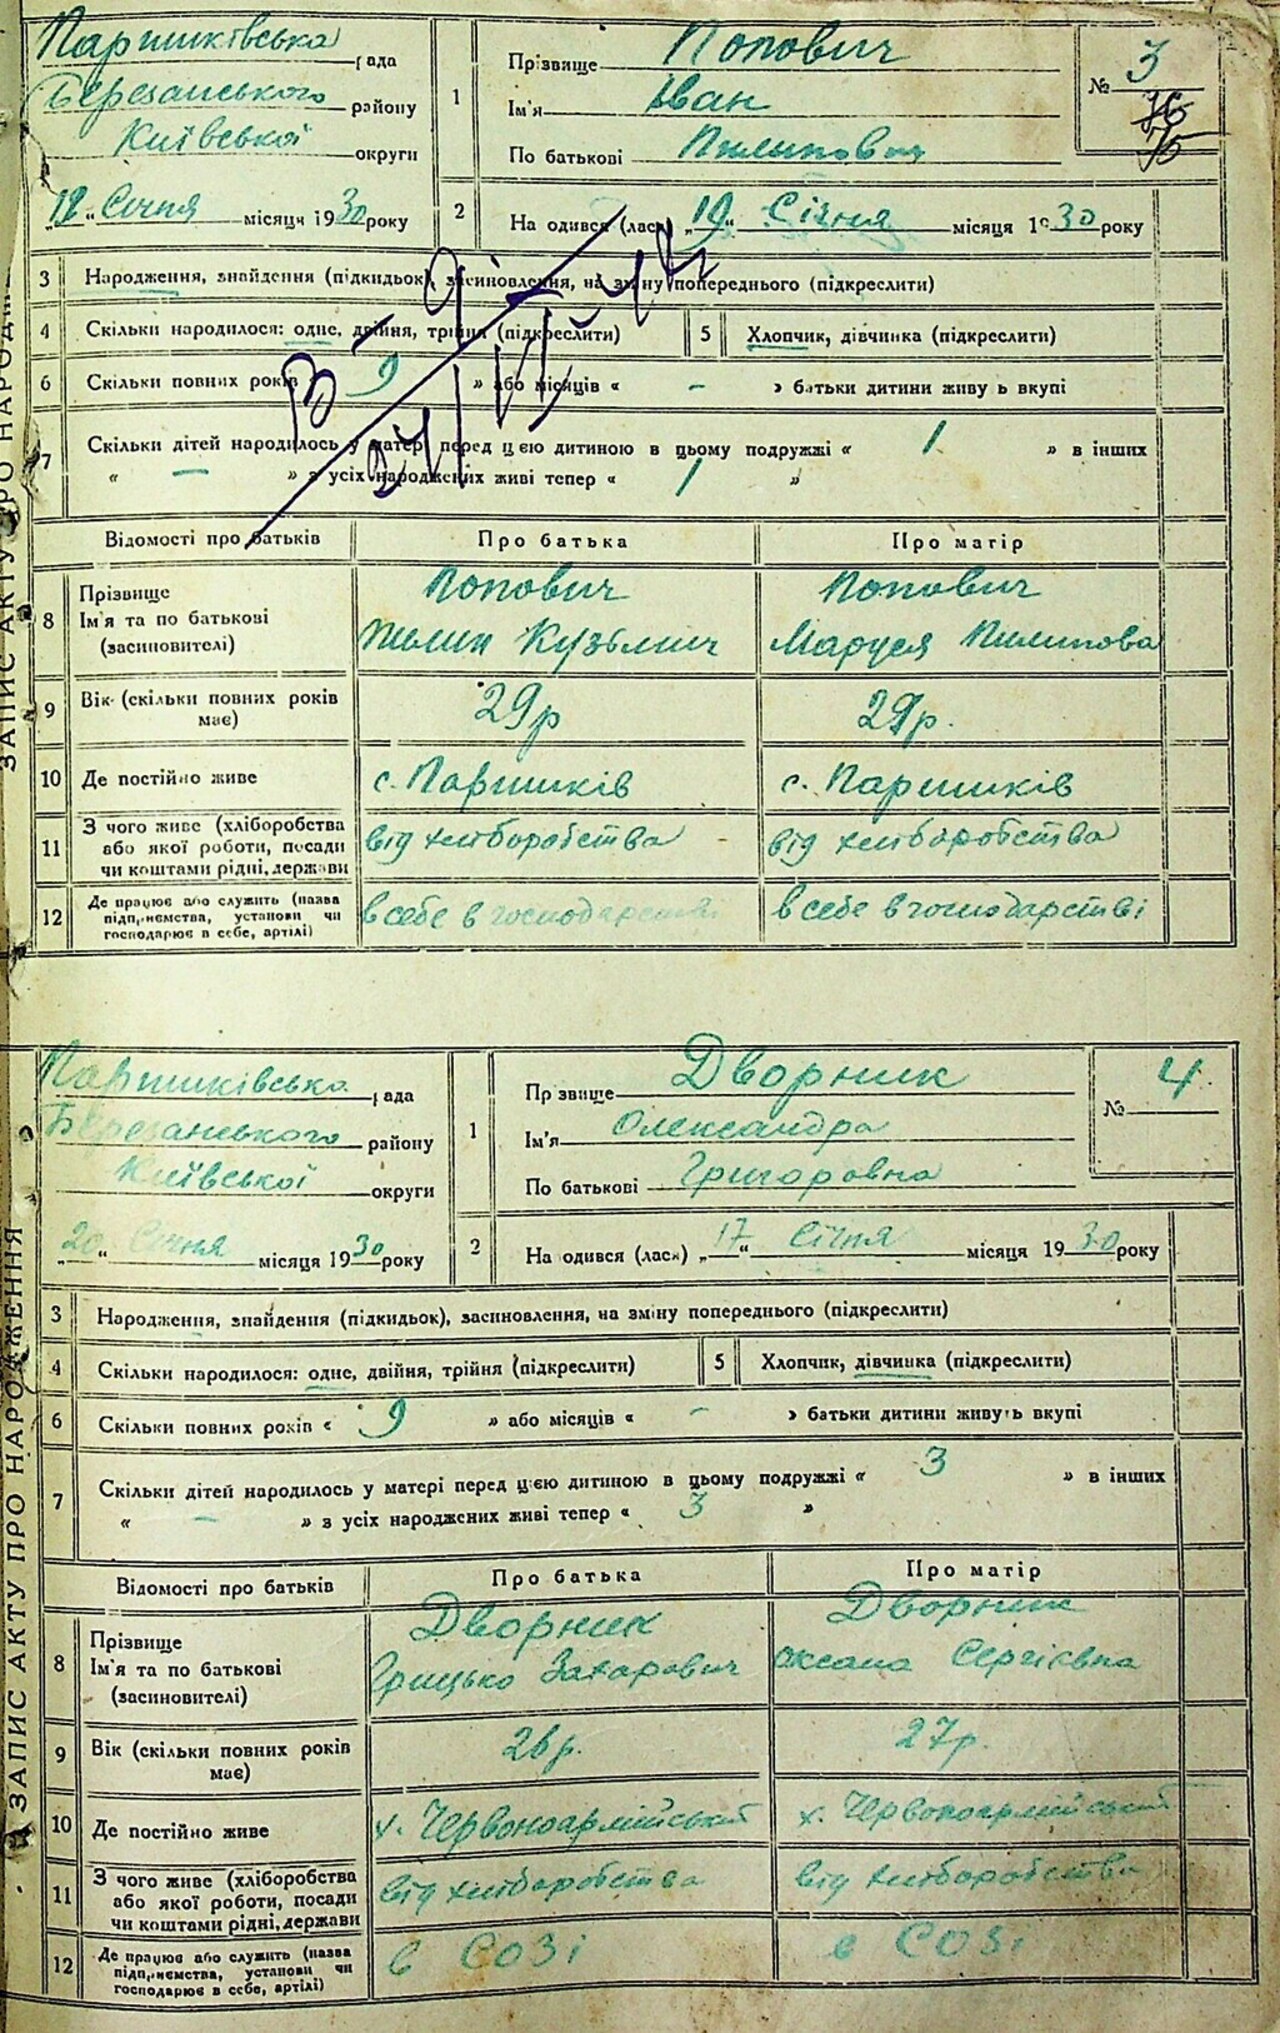 Паришківська рада
Березанського району
Київської округи
„ “ Січня місяця 1930 року
1
Прізвище Попович
Ім'я Іван
По батькові Пилипович
№ 3
75
2
На одився (лася) „ “ Січня місяця 1930 року
3 Народження, знайдення (підкидьок), засиновлення, на зміну попереднього (підкреслити)
4 Скільки народилося: одне, двійня, трійня (підкреслити) 5 Хлопчик, дівчинка (підкреслити)
6 Скільки повних років 9 » або місяців « – » батьки дитини живу ь вкупі
7 Скільки дітей народилось у матері перед цією дитиною в цьому подружжі « 1 » в інших
« — » з усіх народжених живі тепер « 1 »
Відомості про батьків Про батька Про матір
8 Прізвище Ім'я та по батькові (засиновителі)
Попович Пилип Кузьмич
Попович Маруся Пилипова
9 Вік (скільки повних років має) 29р 29р.
10 Де постійно живе с. Паришків с. Паришків
11 З чого живе (хліборобства або якої роботи, посади чи коштами рідні, держави
від хліборобства від хліборобства
12 Де працює або служить (назва підприємства, установи чи господарює в себе, артілі)
в себе в господарстві в себе в господарстві
ЗАПИС АКТУ ПРО НАРОДЖ
Паришківська рада
Березанського району
Київської округи
20 „ “ Січня місяця 1930 року
1
Прізвище Дворник
Ім'я Олександра
По батькові Григоровна
№ 4
2
На одився (лася) „17“ Січня місяця 1930 року
3 Народження, знайдення (підкидьок), засиновлення, на зміну попереднього (підкреслити)
4 Скільки народилося: одне, двійня, трійня (підкреслити) 5 Хлопчик, дівчинка (підкреслити)
6 Скільки повних років « 9 » або місяців « – » батьки дитини живуть вкупі
7 Скільки дітей народилось у матері перед цією дитиною в цьому подружжі « 3 » в інших
« – » з усіх народжених живі тепер « 3 »
Відомості про батьків Про батька Про матір
8 Прізвище Ім'я та по батькові (засиновителі)
Дворник Грицько Захарович
Дворник Оксана Сергієвна
9 Вік (скільки повних років має) 26р. 27р.
10 Де постійно живе х. Червоноармійський х. Червоноармійський
11 З чого живе (хліборобства або якої роботи, посади чи коштами рідні, держави
від хліборобства від хліборобства
12 Де працює або служить (назва підприємства, установи чи господарює в себе, артілі)
в СОЗі в СОЗі
ЗАПИС АКТУ ПРО НАРОДЖЕННЯ